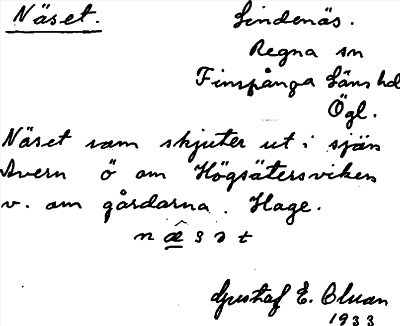 Näset.
Lindenäs.
Regna sn
Finspånga Läns hd
Ögl.
Näset som skjuter ut i sjön
Avern ö om Högsätersviken
v. om gårdarna. Hage.
Gustaf E.
1933